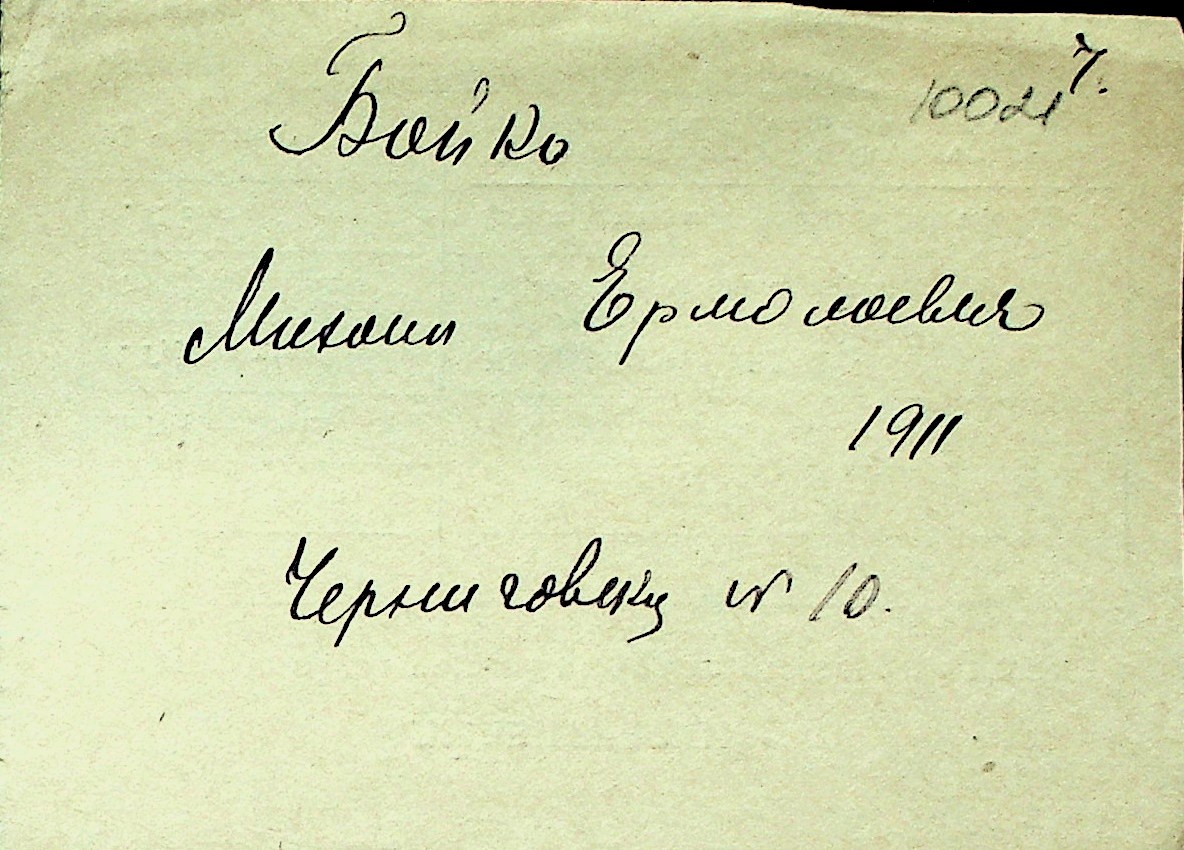 Бойко
10021 7.
Михаил Ермолаевич
1911
Черниговску № 10.